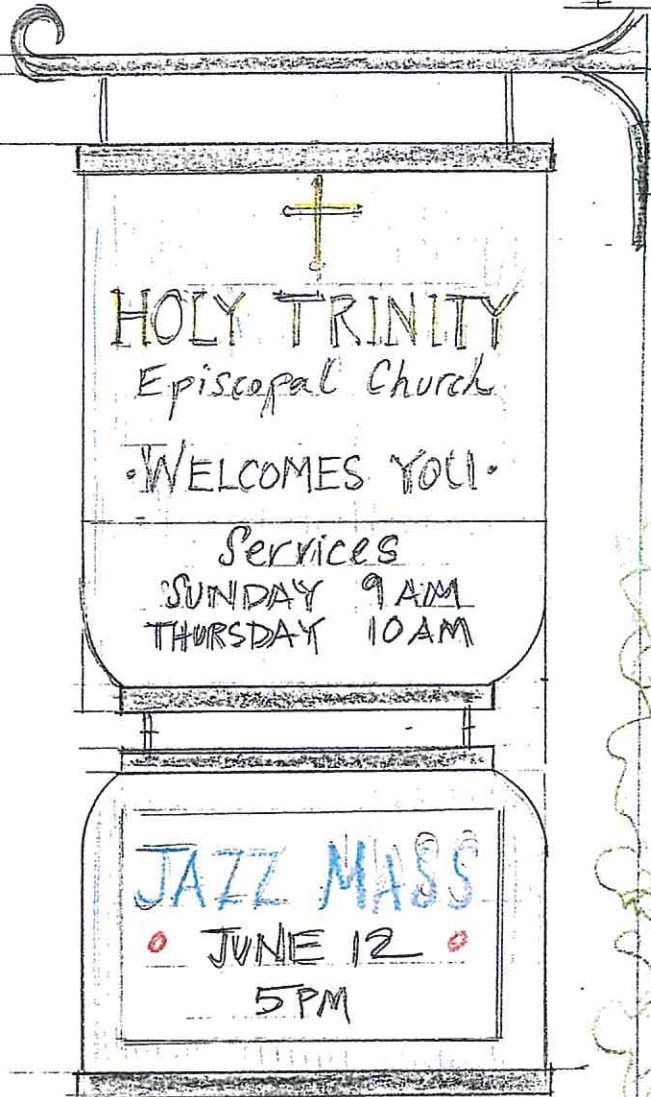 HOLY TRINITY
Episcopal Church
·WELCOMES YOU·
Services
SUNDAY 9 AM
THURSDAY 10 AM
JAZZ MASS
JUNE 12
5 PM